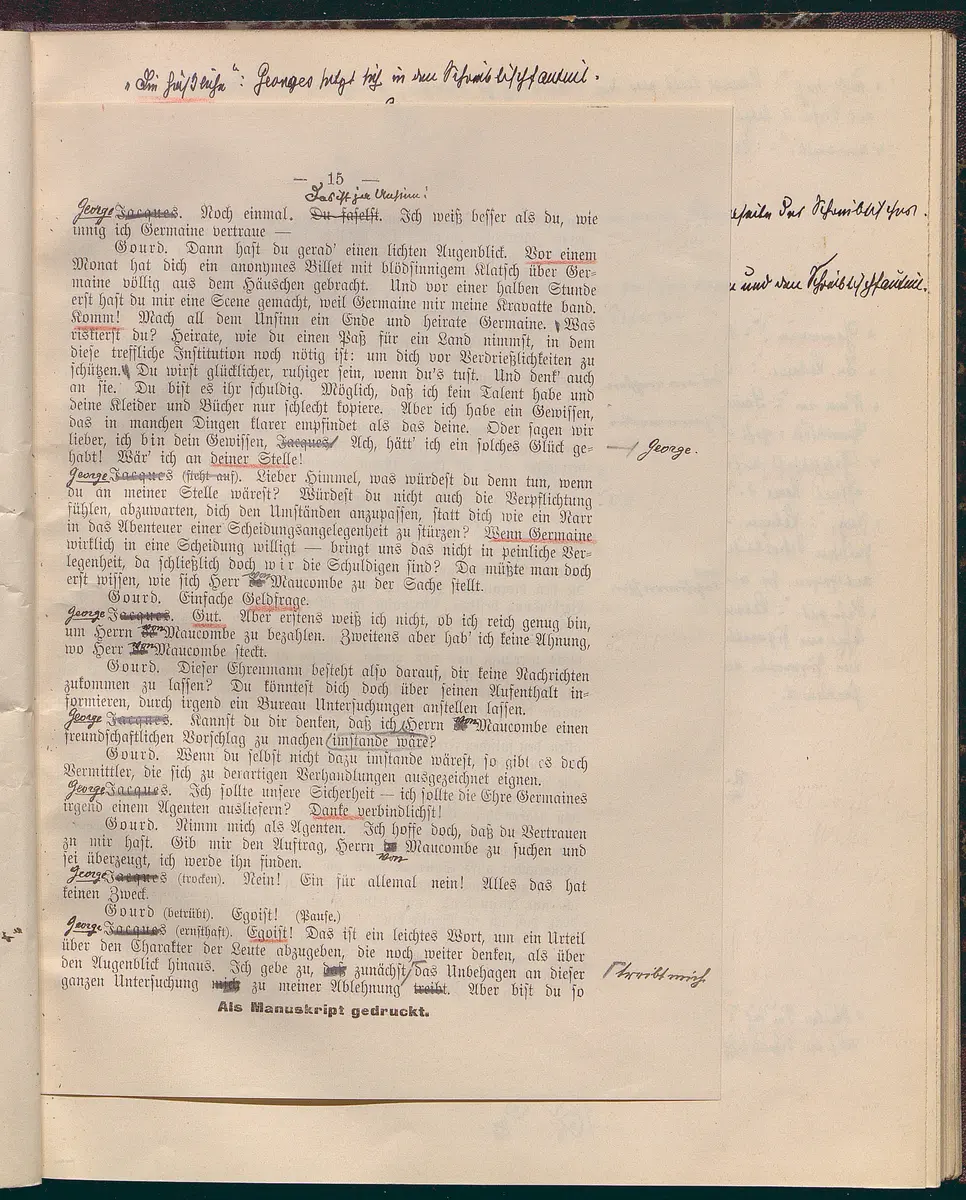 : Georges setzt sich in den Schreibtischfauteuil.
— 15 —
Das ist ja Unsinn!
George Jacques. Noch einmal. Du faselst. Ich weiß besser als du, wie
innig ich Germaine vertraue —
Gourd. Dann hast du gerad' einen lichten Augenblick. Vor einem
Monat hat dich ein anonymes Billet mit blödsinnigem Klatsch über Ger-
maine völlig aus dem Häuschen gebracht. Und vor einer halben Stunde
erst hast du mir eine Scene gemacht, weil Germaine mir meine Kravatte band.
Komm! Mach all dem Unsinn ein Ende und heirate Germaine. Was
riskierst du? Heirate, wie du einen Paß für ein Land nimmst, in dem
diese treffliche Institution noch nötig ist: um dich vor Verdrießlichkeiten zu
schützen. Du wirst glücklicher, ruhiger sein, wenn du's tust. Und denk' auch
an sie. Du bist es ihr schuldig. Möglich, daß ich kein Talent habe und
deine Kleider und Bücher nur schlecht kopiere. Aber ich habe ein Gewissen,
das in manchen Dingen klarer empfindet als das deine. Oder sagen wir
lieber, ich bin dein Gewissen, Jacques! Ach, hätt' ich ein solches Glück ge-
habt! Wär' ich an deiner Stelle!
George.
George Jacques (steht auf). Lieber Himmel, was würdest du denn tun, wenn
du an meiner Stelle wärest? Würdest du nicht auch die Verpflichtung
fühlen, abzuwarten, dich den Umständen anzupassen, statt dich wie ein Narr
in das Abenteuer einer Scheidungsangelegenheit zu stürzen? Wenn Germaine
wirklich in eine Scheidung willigt — bringt uns das nicht in peinliche Ver-
legenheit, da schließlich doch wir die Schuldigen sind? Da müßte man doch
erst wissen, wie sich Herr von Maucombe zu der Sache stellt.
Gourd. Einfache Geldfrage.
George Jacques. Gut. Aber erstens weiß ich nicht, ob ich reich genug bin,
um Herrn von Maucombe zu bezahlen. Zweitens aber hab' ich keine Ahnung,
wo Herr von Maucombe steckt.
Gourd. Dieser Ehrenmann besteht also darauf, dir keine Nachrichten
zukommen zu lassen? Du könntest dich doch über seinen Aufenthalt in-
formieren, durch irgend ein Bureau Untersuchungen anstellen lassen.
George Jacques. Kannst du dir denken, daß ich Herrn von Maucombe einen
freundschaftlichen Vorschlag zu machen imstande wäre?
Gourd. Wenn du selbst nicht dazu imstande wärest, so gibt es doch
Vermittler, die sich zu derartigen Verhandlungen ausgezeichnet eignen.
George Jacques. Ich sollte unsere Sicherheit — ich sollte die Ehre Germaines
irgend einem Agenten ausliefern? Danke verbindlichst!
Gourd. Nimm mich als Agenten. Ich hoffe doch, daß du Vertrauen
zu mir hast. Gib mir den Auftrag, Herrn von Maucombe zu suchen und
sei überzeugt, ich werde ihn finden.
George Jacques (trocken). Nein! Ein für allemal nein! Alles das hat
keinen Zweck.
Gourd (betrübt). Egoist! (Pause.)
George Jacques (ernsthaft). Egoist! Das ist ein leichtes Wort, um ein Urteil
über den Charakter der Leute abzugeben, die noch weiter denken, als über
den Augenblick hinaus. Ich gebe zu, daß zunächst das Unbehagen an dieser
ganzen Untersuchung mich zu meiner Ablehnung treibt. Aber bist du so
treibt mich
Als Manuskript gedruckt.
des Schreibtisches.
und den Schreibtischfauteuil.